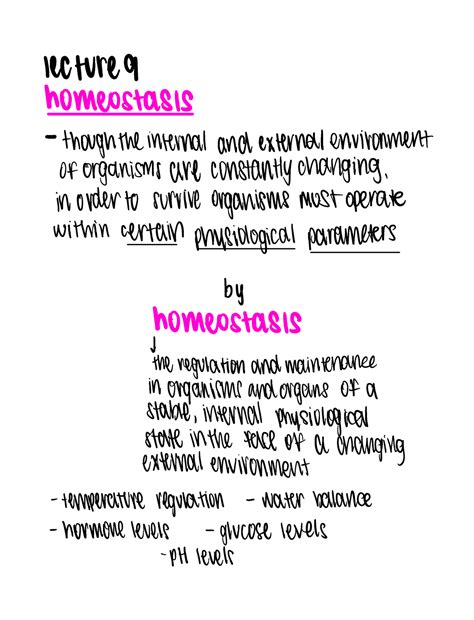 lecture 9
homeostasis
- though the internal and external environment
of organisms are constantly changing,
in order to survive organisms must operate
within certain physiological parameters
by
homeostasis
↓
the regulation and maintenance
in organisms and organs of a
stable, internal physiological
state in the face of a changing
external environment
- temperature regulation - water balance
- hormone levels - glucose levels
- pH levels